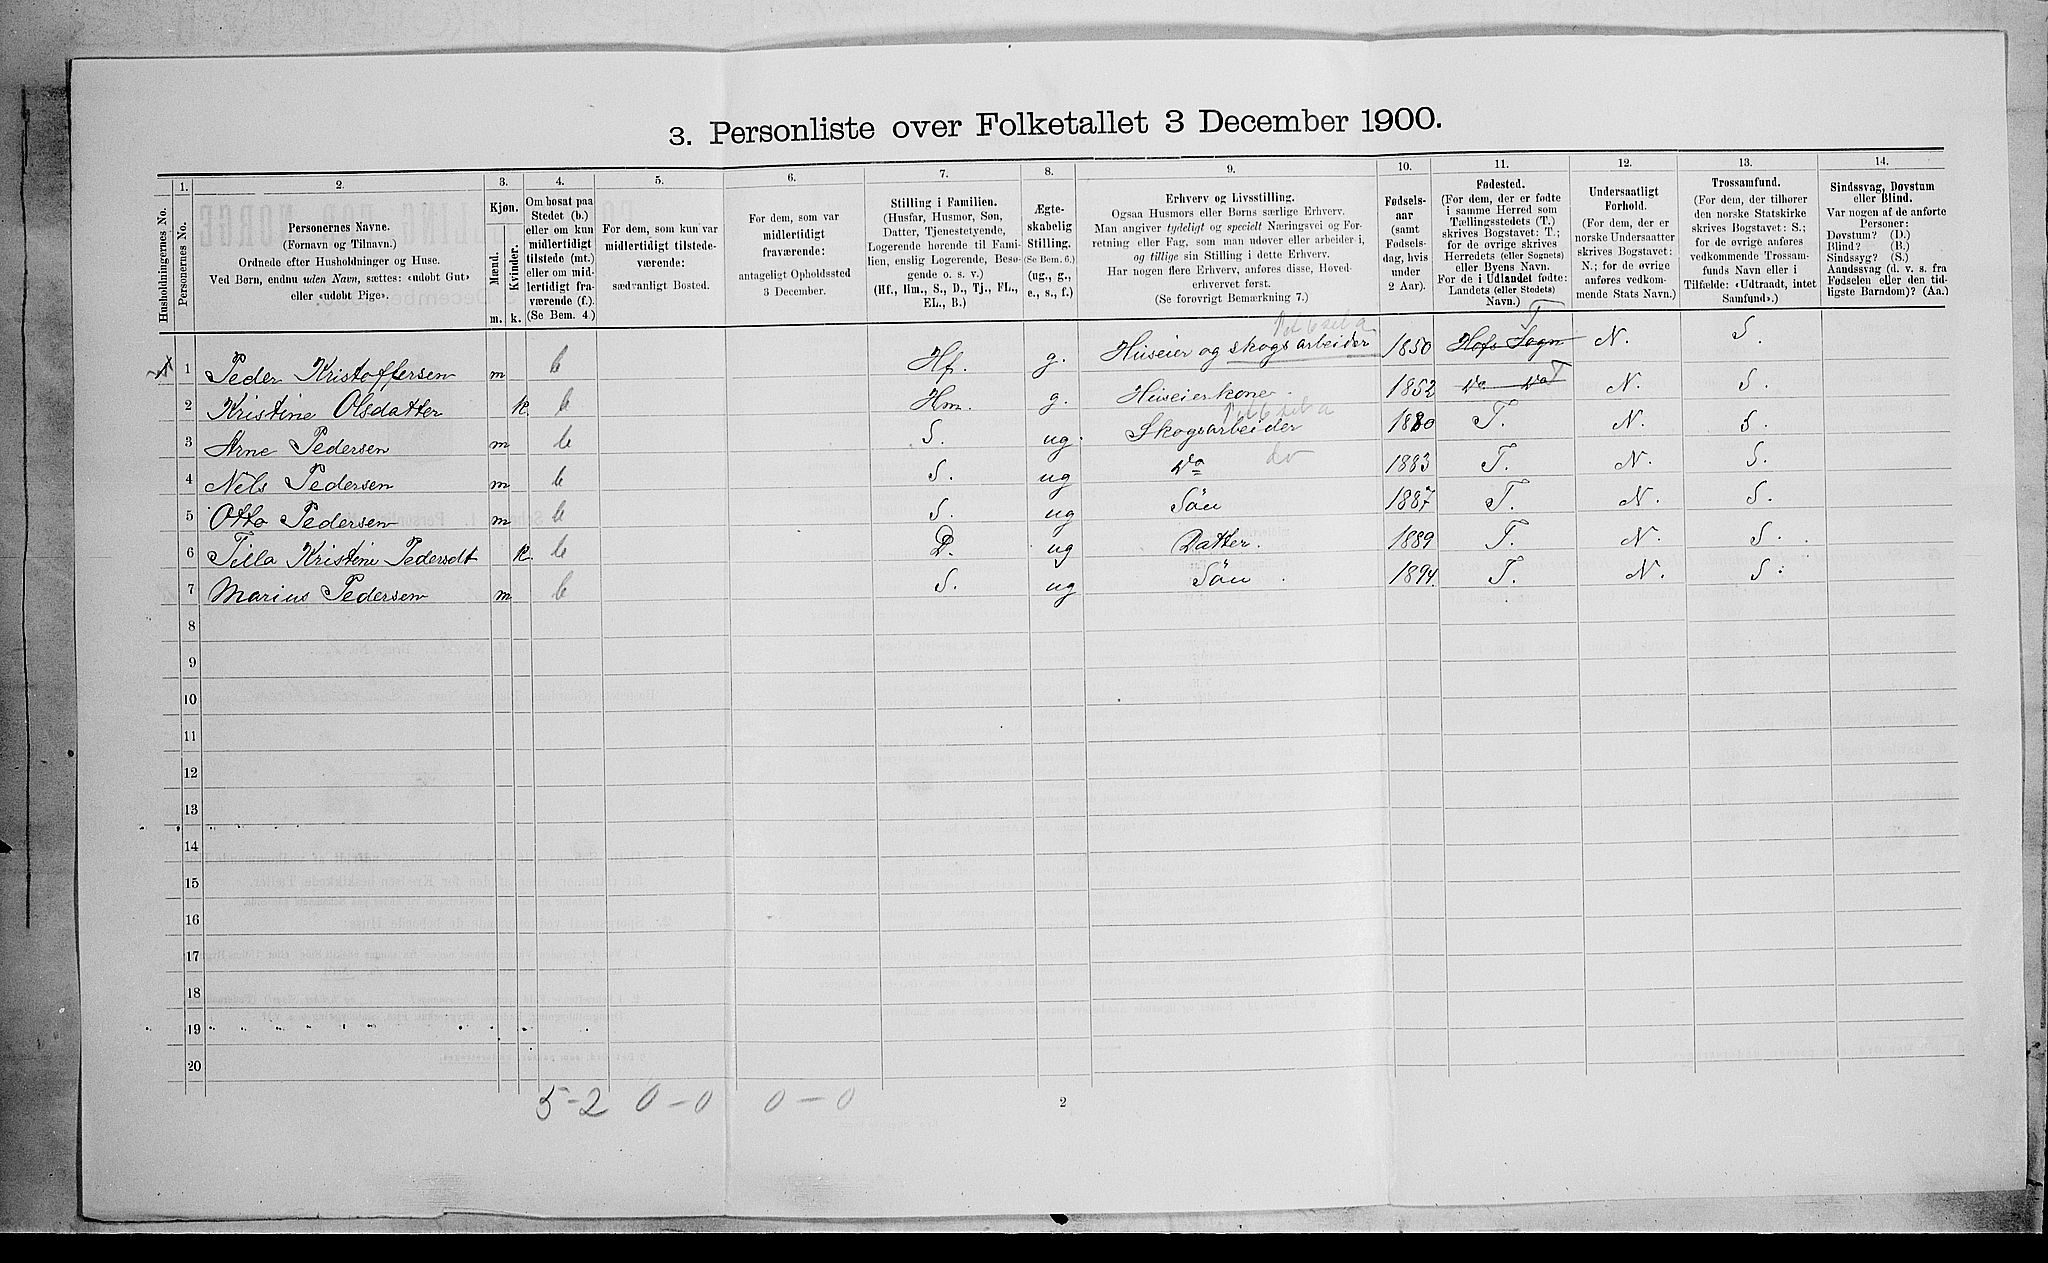 3. Personliste over Folketallet 3 December 1900.
1. 2. 3. 4. 5. 6. 7. 8. 9. 10. 11. 12. 13. 14.
Husholdningernes No.
Personernes No.
Personernes Navne.
(Fornavn og Tilnavn.)
Ordnede efter Husholdninger og Huse.
Ved Børn, endnu uden Navn, sættes: «udøbt Gut»
eller «udøbt Pige».
Kjøn.
Mænd.
Kvinder.
m. k.
Om bosat paa
Stedet (b.)
eller om kun
midlertidigt
tilstede (mt.)
eller om mid-
lertidigt fra-
værende (f.).
(Se Bem. 4.)
For dem, som kun var
midlertidigt tilstede-
værende:
sædvanligt Bosted.
For dem, som var
midlertidigt
fraværende:
antageligt Opholdssted
3 December.
Stilling i Familien.
(Husfar, Husmor, Søn,
Datter, Tjenestetyende,
Logerende hørende til Fami-
lien, enslig Logerende, Besø-
gende o. s. v.)
(Hf., Hm., S., D., Tj., FL.,
EL., B.)
Ægte-
skabelig
Stilling.
(Se Bem. 6.)
(ug., g.,
e., s., f.)
Erhverv og Livsstilling.
Ogsaa Husmors eller Børns særlige Erhverv.
Man angiver tydeligt og specielt Næringsvei og For-
retning eller Fag, som man udøver eller arbeider i,
og tillige sin Stilling i dette Erhverv.
Har nogen flere Erhverv, anføres disse, Hoved-
erhvervet først.
(Se forøvrigt Bemærkning 7.)
Fødsels-
aar
(samt
Fødsels-
dag, hvis
under
2 Aar).
Fødested.
(For dem, der er fødte
i samme Herred som
Tællingsstedets (T.)
skrives Bogstavet: T.;
for de øvrige skrives
Herredets (eller Sognets)
eller Byens Navn.
For de i Udlandet fødte:
Landets (eller Stedets)
Navn.)
Undersaatligt
Forhold.
(For dem, der er
norske Undersaatter
skrives Bogstavet:
N.; for de øvrige
anføres vedkom-
mende Stats Navn.)
Trossamfund.
(For dem, der tilhører
den norske Statskirke
skrives Bogstavet: S.;
for de øvrige anføres
vedkommende Trossam-
funds Navn eller i
Tilfælde: «Udtraadt, intet
Samfund».)
Sindssvag, Døvstum
eller Blind.
Var nogen af de anførte
Personer:
Døvstum? (D.)
Blind? (B.)
Sindssyg? (S.)
Aandssvag (d. v. s. fra
Fødselen eller den tid-
ligste Barndom)? (Aa.)
1 Peder Kristoffersen m b Hf. g. Huseier og skogsarbeider 1850 Hofs Sogn T N. S.
2 Kristine Olsdatter k. b Hm. g. Huseierkone. 1852 Do Do T N. S.
3 Arne Pedersen m b S. ug. Skogsarbeider 1880 T. N. S.
4 Nels Pedersen m b S. ug Do do 1883 T. N. S.
5 Otto Pedersen m b S. ug Søn 1887 T. N. S.
6 Tilla Kristine Pedersdt k. b D. ug Datter. 1889 T. N. S.
7 Marius Pedersen m b S. ug Søn 1894. T. N. S.
8
9
10
11
12
13
14
15
16
17
18
19
20
5-2 0-0 0-0
2